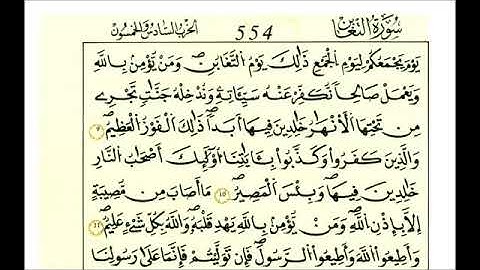 سُورَةُ التَّغَابُن 554 الحزب السادس والخمسون
يَوْمَ يَجْمَعُكُمْ لِيَوْمِ الْجَمْعِ ذَٰلِكَ يَوْمُ التَّغَابُنِ وَمَنْ يُّومِنْ بِاللَّهِ
وَيَعْمَلْ صَالِحاً نُّكَفِّرْ عَنْهُ سَيِّئَاتِهِ وَنُدْخِلْهُ جَنَّاتٍ تَجْرِي
مِن تَحْتِهَا الْأَنْهَارُ خَالِدِينَ فِيهَا أَبَداً ذَٰلِكَ الْفَوْزُ الْعَظِيمُ 9
وَالَّذِينَ كَفَرُوا وَكَذَّبُوا بِئَايَاتِنَا أُوْلَٰئِكَ أَصْحَابُ النَّارِ
خَالِدِينَ فِيهَا وَبِئْسَ الْمَصِيرُ 10 مَا أَصَابَ مِن مُّصِيبَةٍ
إِلَّا بِإِذْنِ اللَّهِ وَمَنْ يُّومِنْ بِاللَّهِ يَهْدِ قَلْبَهُ وَاللَّهُ بِكُلِّ شَيْءٍ عَلِيمٌ 11
وَأَطِيعُوا اللَّهَ وَأَطِيعُوا الرَّسُولَ فَإِن تَوَلَّيْتُمْ فَإِنَّمَا عَلَىٰ رَسُولِنَا